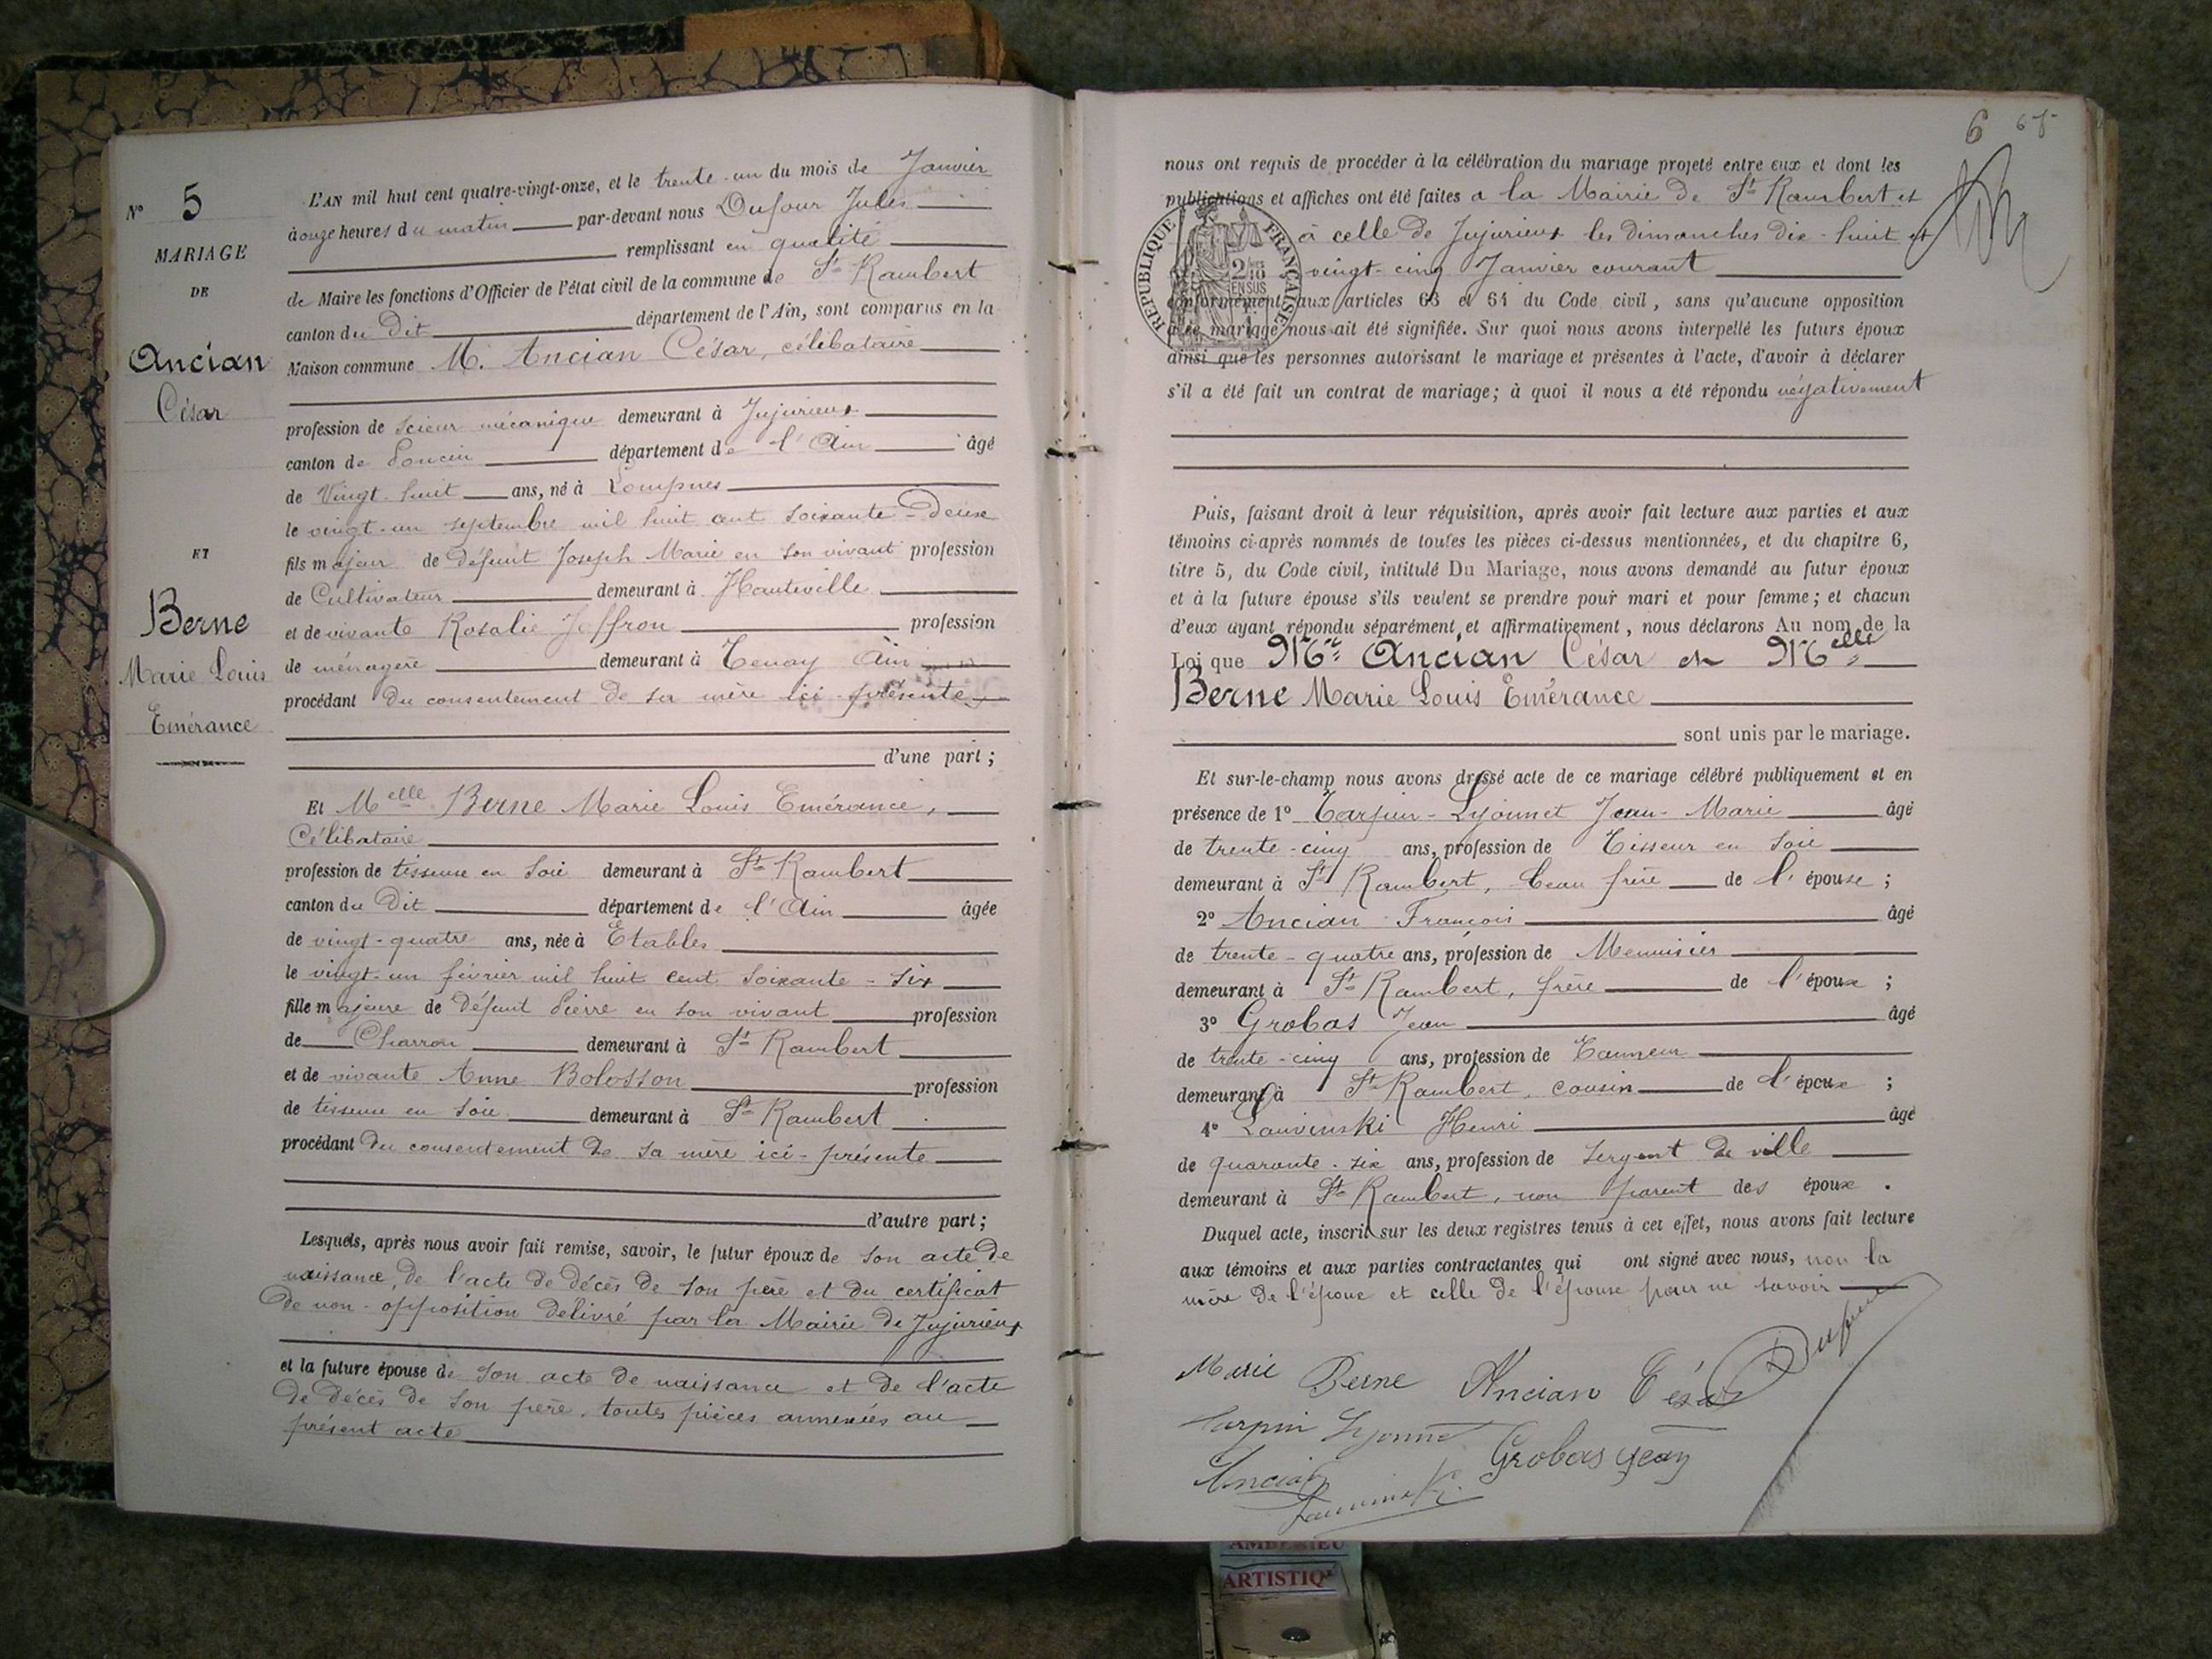 N° 5
MARIAGE
DE
Ancian
César
ET
Berne
Marie Louis
Emérance
L'AN mil huit cent quatre-vingt-onze, et le trente-un du mois de Janvier
à onze heures du matin par-devant nous Dufour Jules
remplissant en qualité
de Maire les fonctions d'Officier de l'état civil de la commune de St Rambert
canton du dit département de l'Ain, sont comparus en la
Maison commune M. Ancian César, célibataire
profession de scieur mécanique demeurant à Jujurieux
canton de Poncin département de l'Ain âgé
de Vingt-huit ans, né à Lompnes
le vingt-un septembre mil huit cent soixante-deux
fils majeur de défunt Joseph Marie en son vivant profession
de Cultivateur demeurant à Hauteville
et de vivante Rosalie Joffron profession
de ménagère demeurant à Tenay Ain
procédant du consentement de sa mère ici-présente
d'une part ;
Et Melle Berne Marie Louis Emérance,
Célibataire
profession de tisseuse en soie demeurant à St Rambert
canton du dit département de l'Ain âgée
de vingt-quatre ans, née à Etables
le vingt-un février mil huit cent soixante-six
fille majeure de défunt Pierre en son vivant profession
de Charron demeurant à St Rambert
et de vivante Anne Bolosson profession
de tisseuse en soie demeurant à St Rambert
procédant du consentement de sa mère ici-présente
d'autre part ;
Lesquels, après nous avoir fait remise, savoir, le futur époux de son acte de
naissance, de l'acte de décès de son père et du certificat
de non-opposition delivré par la Mairie de Jujurieux
et la future épouse de son acte de naissance et de l'acte
de décès de son père, toutes pièces annexées au
présent acte
6 65
nous ont requis de procéder à la célébration du mariage projeté entre eux et dont les
publications et affiches ont été faites a la Mairie de St Rambert et
à celle de Jujurieux les dimanches dix-huit et
vingt-cinq Janvier courant
conformément aux articles 63 et 64 du Code civil, sans qu'aucune opposition
à ce mariage nous ait été signifiée. Sur quoi nous avons interpellé les futurs époux
ainsi que les personnes autorisant le mariage et présentes à l'acte, d'avoir à déclarer
s'il a été fait un contrat de mariage ; à quoi il nous a été répondu négativement
RÉPUBLIQUE FRANÇAISE
2/10
EN SUS
Puis, faisant droit à leur réquisition, après avoir fait lecture aux parties et aux
témoins ci-après nommés de toutes les pièces ci-dessus mentionnées, et du chapitre 6,
titre 5, du Code civil, intitulé Du Mariage, nous avons demandé au futur époux
et à la future épouse s'ils veulent se prendre pour mari et pour femme ; et chacun
d'eux ayant répondu séparément et affirmativement, nous déclarons Au nom de la
Loi que Mr Ancian César et Melle
Berne Marie Louis Emérance
sont unis par le mariage.
Et sur-le-champ nous avons dressé acte de ce mariage célébré publiquement et en
présence de 1° Tarpin-Lyonnet Jean-Marie âgé
de trente-cinq ans, profession de Tisseur en soie
demeurant à St Rambert, beau frère de l'épouse ;
2° Ancian François âgé
de trente-quatre ans, profession de Menuisier
demeurant à St Rambert, frère de l'époux ;
3° Grobas Jean âgé
de trente-cinq ans, profession de Tanneur
demeurant à St Rambert, cousin de l'époux ;
4° Lauvinski Henri âgé
de quarante-six ans, profession de sergent de ville
demeurant à St Rambert, non parent des époux.
Duquel acte, inscrit sur les deux registres tenus à cet effet, nous avons fait lecture
aux témoins et aux parties contractantes qui ont signé avec nous, non la
mère de l'époux et celle de l'épouse pour ne savoir
Marie Berne Ancian César Dufour
Tarpin Lyonnet
Ancian Grobas Jean
AMBERIEU
ARTISTIQ